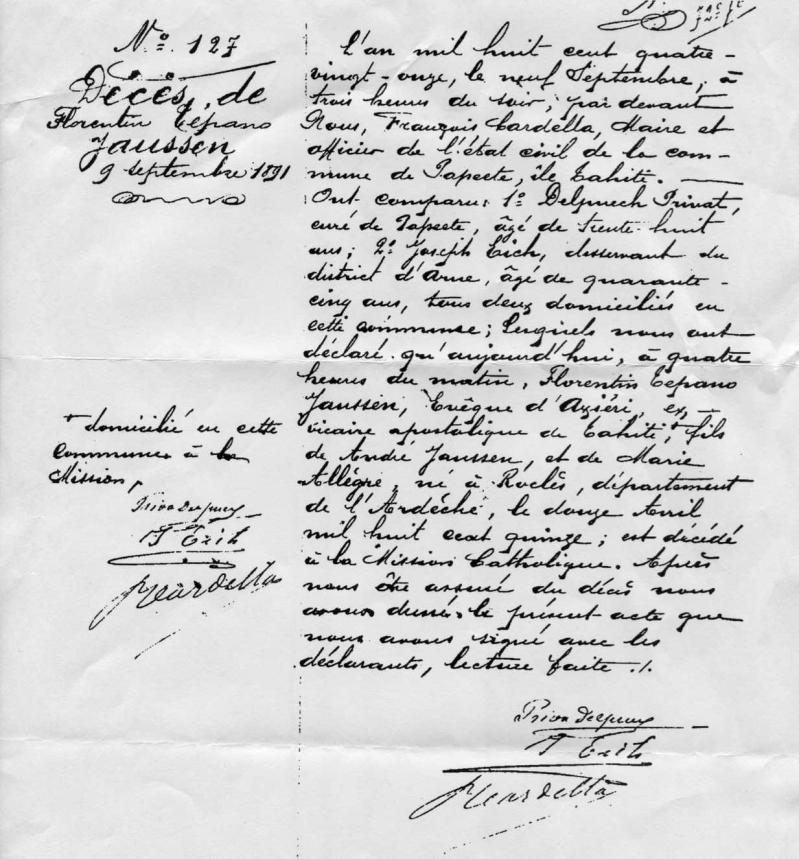 Nº. 127
Décès, de
Florentin Tepano
Jaussen
9 Septembre 1891
+ domicilié en cette
Commune à la
Mission,
T Eich
F Cardella
L'an mil huit cent quatre-
vingt-onze, le neuf Septembre, à
trois heures du soir; par devant
Nous, François Cardella, Maire et
officier de l'état civil de la com-
mune de Papeete, île Tahiti. —
Ont comparu: 1º Delpuech Privat,
curé de Papeete, âgé de trente-huit
ans; 2º Joseph Eich, desservant du
district d'Arue, âgé de quarante-
cinq ans, tous deux domiciliés en
cette commune; Lesquels nous ont
déclaré qu'aujourd'hui, à quatre
heures du matin, Florentin Tepano
Jaussen, Evêque d'Axiéri, ex-
vicaire apostolique de Tahiti,+ fils
de André Jaussen, et de Marie
Allègre, né à Roclès, département
de l'Ardèche, le douze Avril
mil huit cent quinze; est décédé
à la Mission Catholique. Après
nous être assuré du décès nous
avons dressé le présent acte que
nous avons signé avec les
déclarants, lecture faite ./.
T Eich
F Cardella